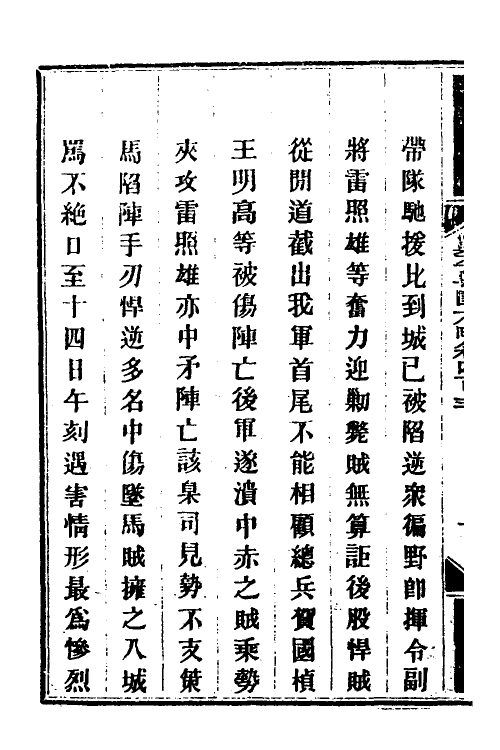 帶隊馳援比到城已被陷逆衆徧野卽揮令副
將雷照雄等奮力迎勦斃賊無算詎後股悍賊
從間道截出我軍首尾不能相顧總兵賀國楨
王明高等被傷陣亡後軍遂潰中赤之賊乘勢
夾攻雷照雄亦中矛陣亡該臬司見勢不支策
馬陷陣手刃悍逆多名中傷墜馬賊擁之入城
罵不絕口至十四日午刻遇害情形最爲慘烈